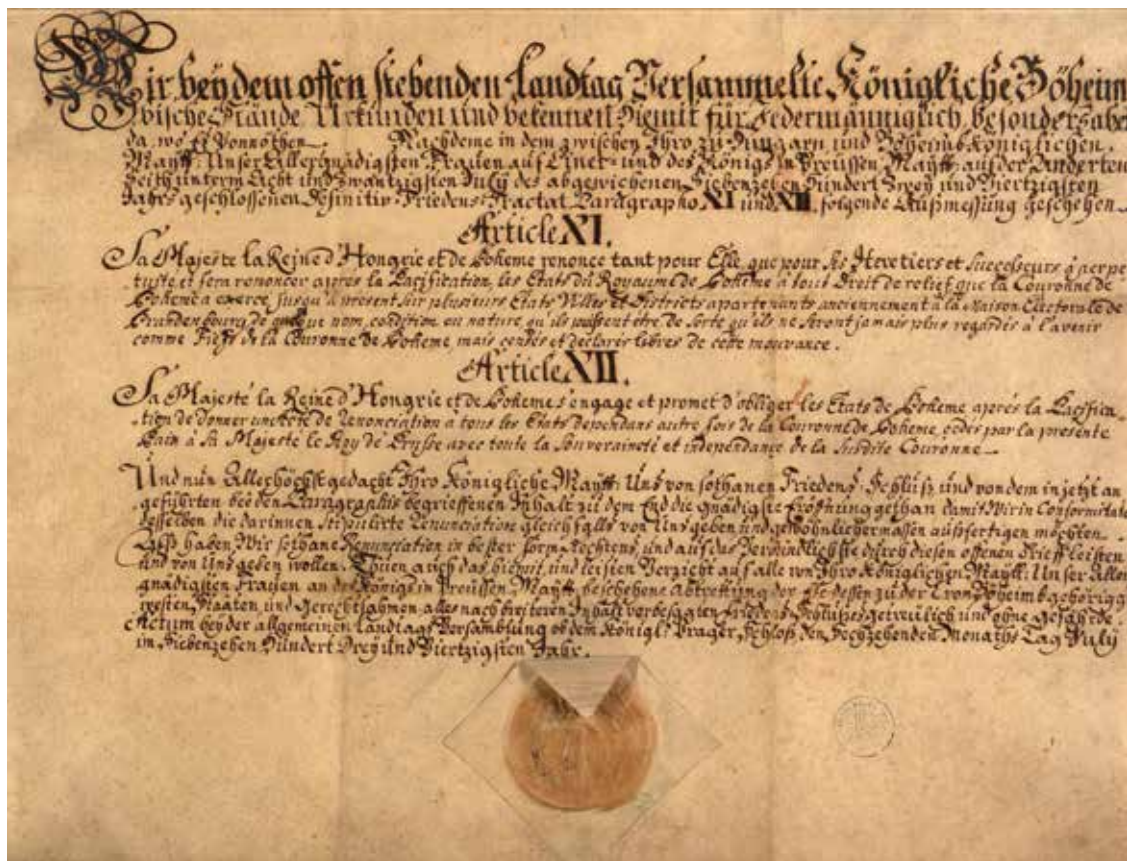 Wir bey dem offen stehenden Landtag Versammelte Königliche Böheim
bische Stände Urkunden und bekennen Hiemit für Jedermänniglich, besonders aber
da, wo es Vonnöthen. Nachdeme in dem zwischen Ihro zu Hungarn und Böheimb Königlichen.
Maytt: Unser Allergnädigsten Frauen auf Einer- und des Königs in Preussen Maytt: auf der Anderten
Seith unterm Acht und Zwantzigsten July des abgewichenen Siebenzehen Hundert Zwey und Viertzigsten
Jahrs geschlossenen Definitiv-Friedens-Tractat Paragrapho XI und XII, folgende Außmessung geschehen.
Article XI.
Sa Majesté la Reine d'Hongrie et de Boheme renonce tant pour Elle, que pour ses Heretiers et Successeurs à perpe
tuité, et fera renoncer après la Pacification, les Etats du Royaume de Bohême à tous Droit de relief que la Couronne de
Bohême a exercé jusqu'à present sur plusieurs Etats Villes et Districts appartenants anciennement à la Maison Electorale de
Brandenbourg de quelque nom, condition ou nature, qu'ils puissent être de sorte qu'ils ne seront jamais plus regardés à l'avenir
comme Fiefs de la Couronne de Boheme, mais censés et declarés libres de cette mouvance.
Article XII.
Sa Majesté la Reine d'Hongrie et de Boheme s'engage et promet d'obliger les Etats de Boheme aprés la Pacifica
-tion de donner un Acte de Renonciation à tous les Etats dependans autre fois de la Couronne de Boheme, cedés par la presente
Paix à Sa Majesté le Roy de Prusse avec toute la Souveraineté et independance de la Susdite Couronne.
Und nun Allerhöchst gedacht Ihro Königliche Maytt: Uns von sothanen Friedens-Schluß, und von dem in jetzt an
geführten beeden Paragraphis begrieffenen Inhalt zu dem End die gnädigste Eröffnung gethan damit Wir in Conformitate
desselben die darinnen stipulirte Renunciation gleichfalls von Uns geben und gewöhnlicher massen außfertigen möchten.
Alß haben Wir sothane Renunciation in bester form Rechtens, und auf das Verbindlichste durch diesen offenen Brieff leisten
und von Uns geben wollen, Thuen auch das hiemit, und leisten Verzicht auf alle von Ihro Königlichen Maytt: Unser Aller
gnädigsten Frauen an des Königs in Preussen Maytt: beschehene Abtrettung der Ehe dessen zu der Cron Böheimb gehörig ge
westen, Staaten und Gerechtsahmen alles nach breiteren Inhalt vorbesagten Friedens Schlußes getreulich und ohne Gefährde.
Actum bey der allgemeinen Landtags Versamblung ob dem Königl: Prager Schloß den Sechzehenden Monaths Tag July
im Siebenzehen Hundert Drey und Viertzigsten Jahr.